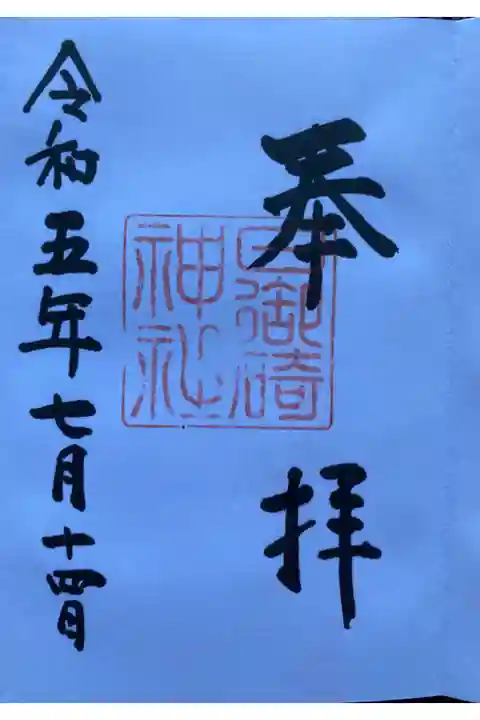 奉拝
日御碕
神社
令和五年七月十四日